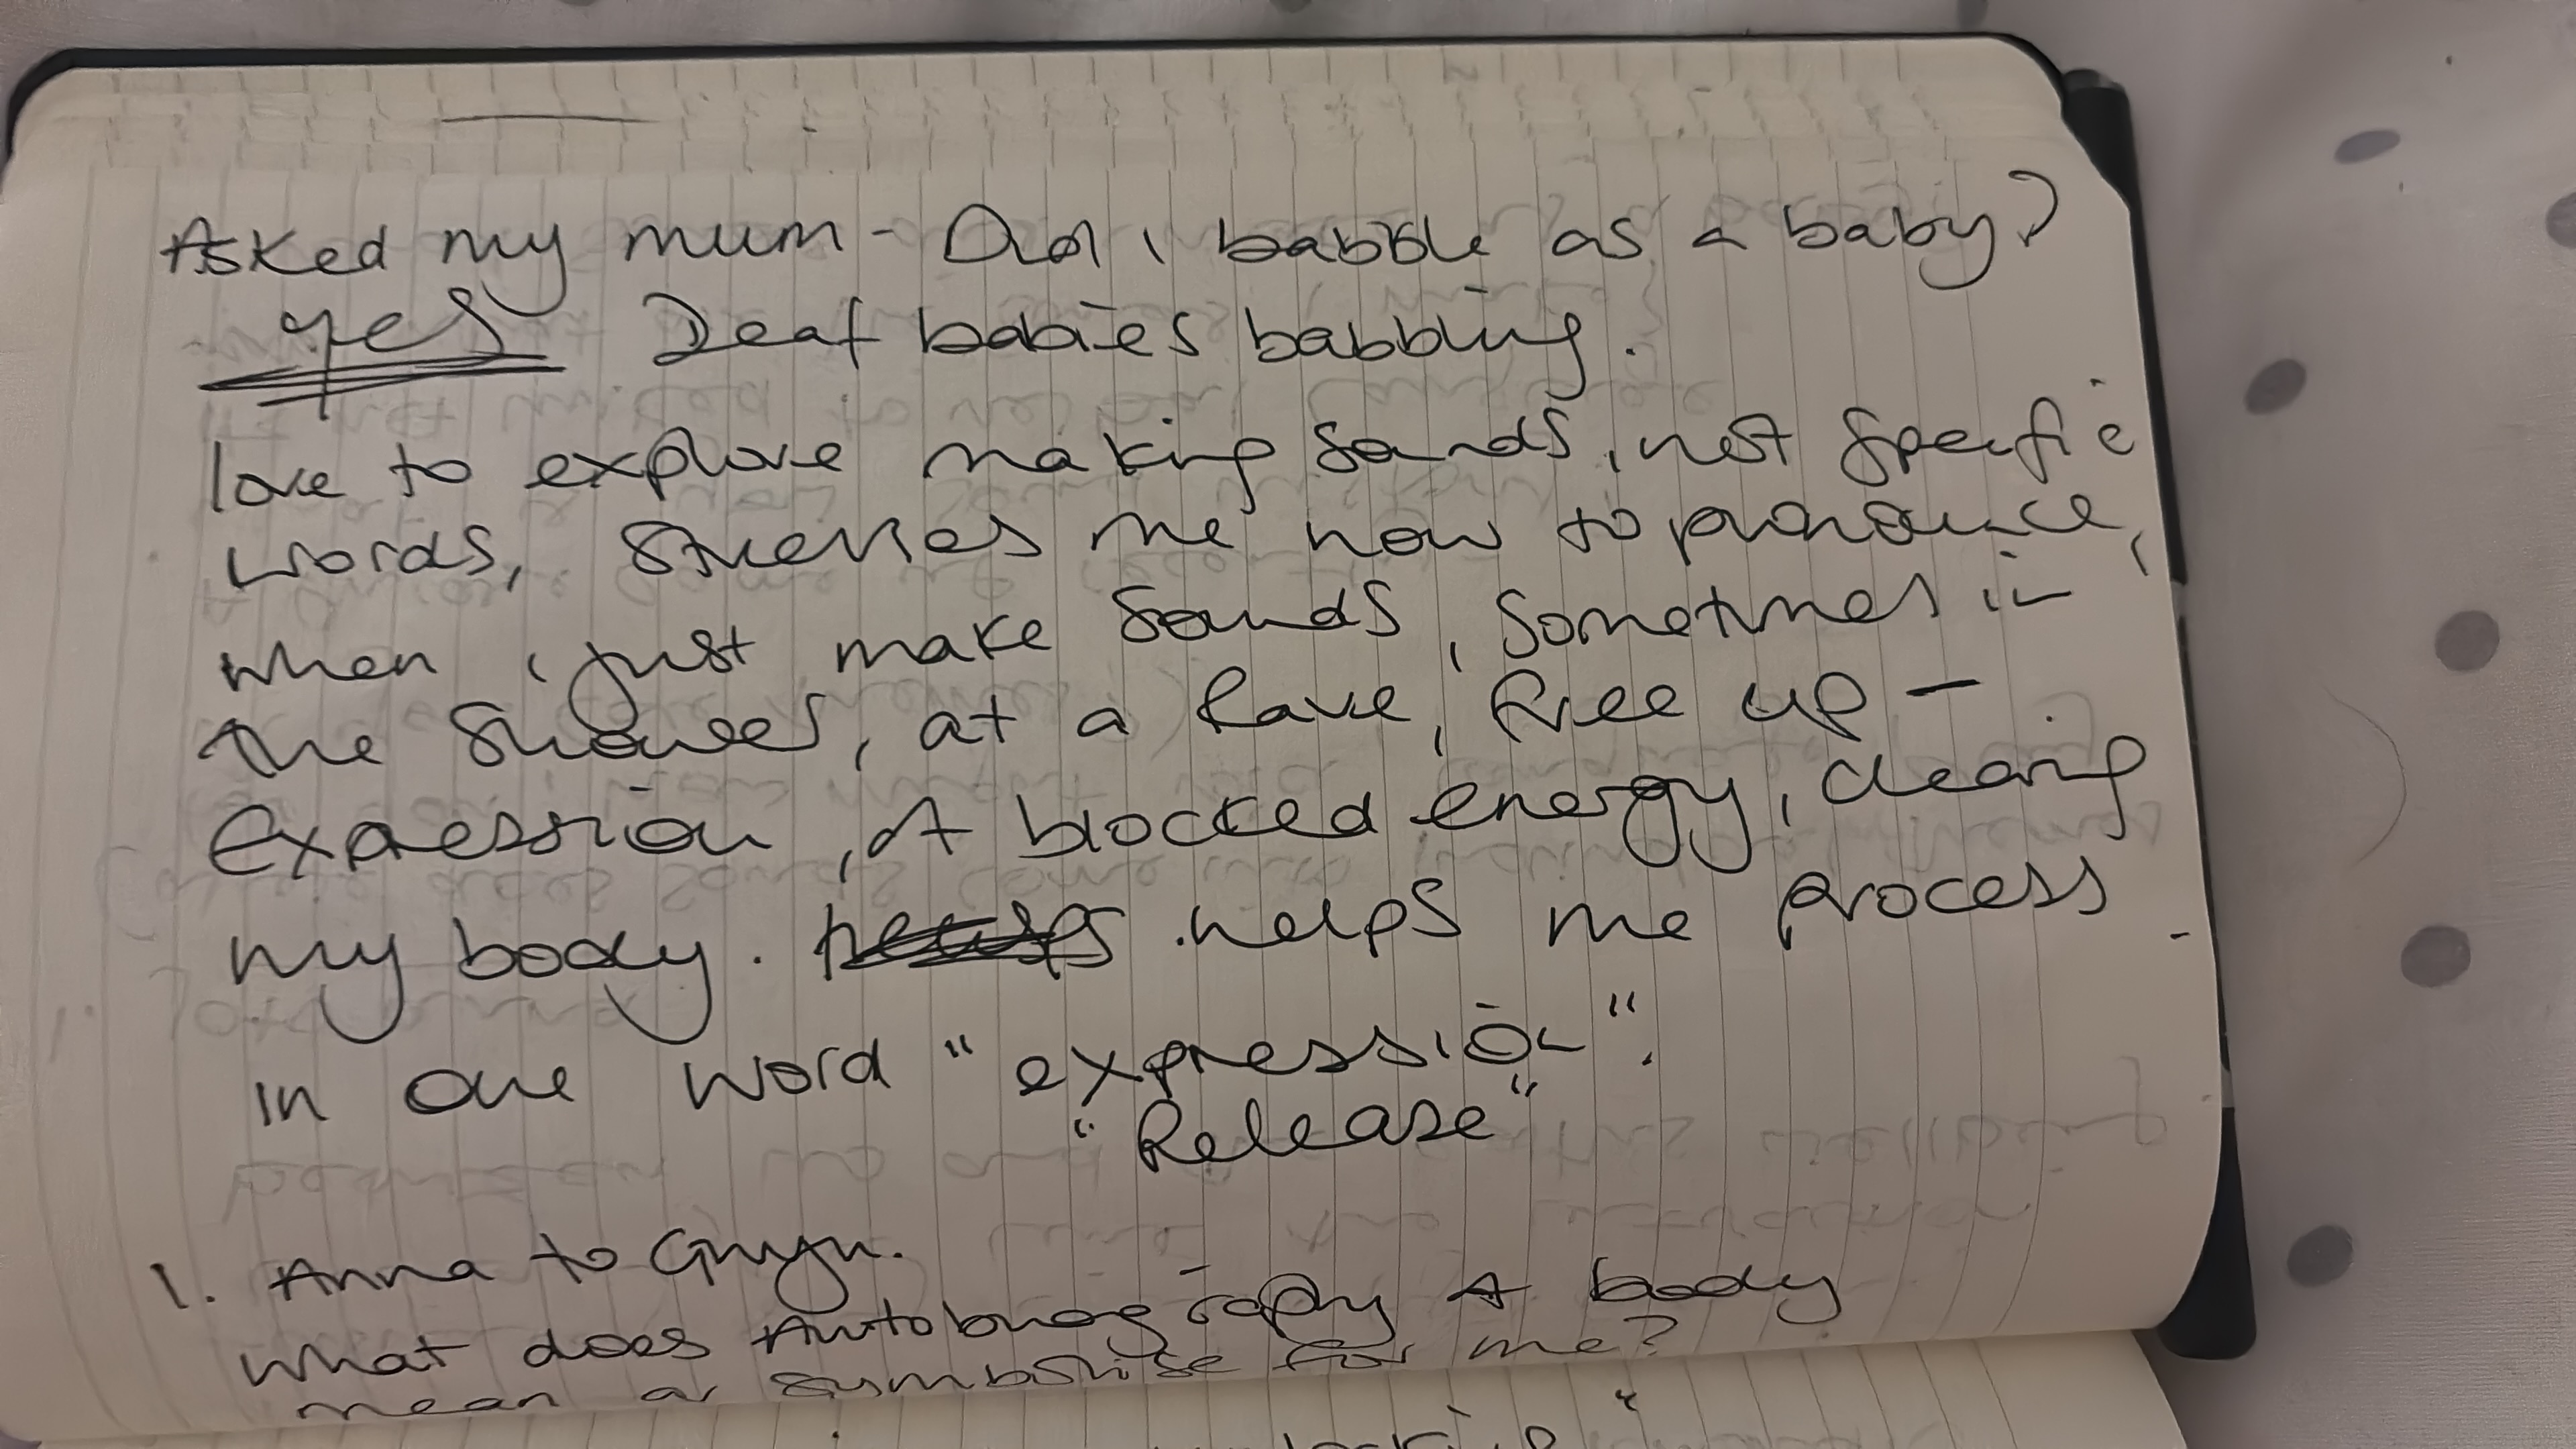 Asked my mum - Did i babble as a baby?
yes Deaf babies babbling.
love to explore making sounds, not specific
words, stresses me how to pronounce,
when i just make sounds, sometimes in
the shower, at a Rave, free up -
expression, A blocked energy, clearing
my body. helps me process
in one word "expression".
"Release"
1. Anna to Gwyn.
What does Autobiography & body
mean or symbolise for me?